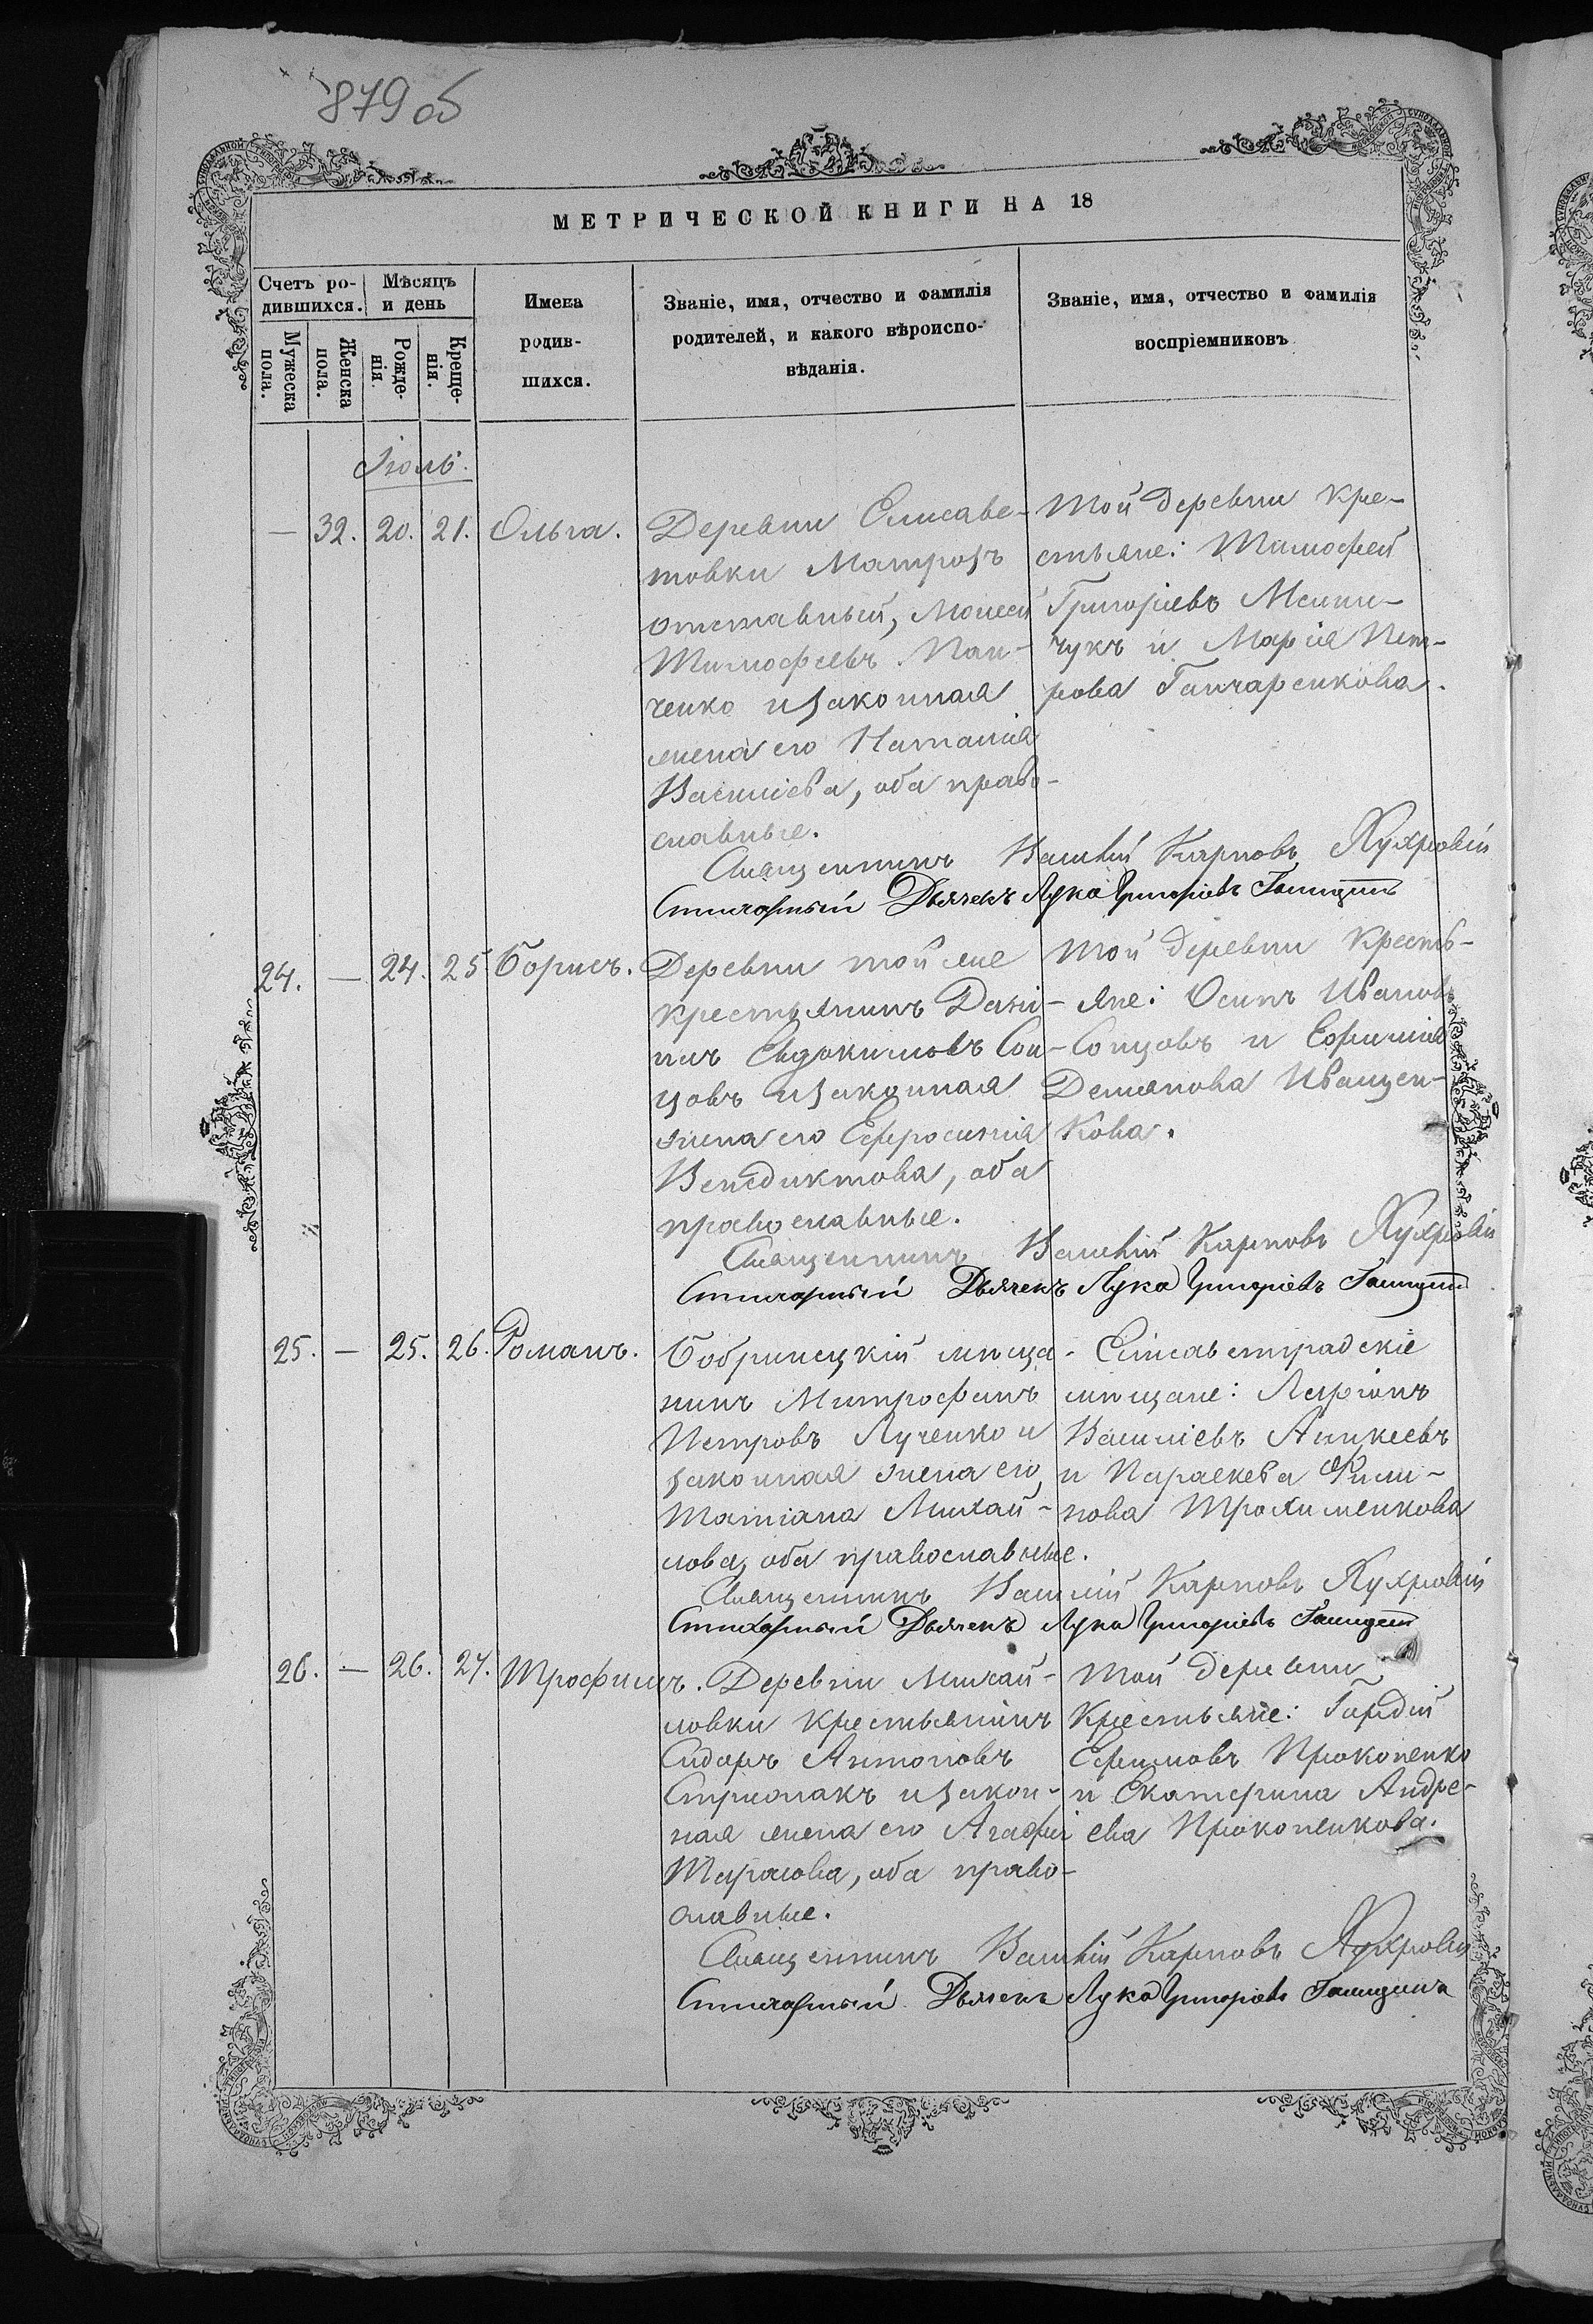 879 об
МЕТРИЧЕСКОЙ КНИГИ НА 18
Счетъ ро-
дившихся.
Мѣсяцъ
и день
Мужеска
пола.
Женска
пола.
Рожде-
нія.
Креще-
нія.
Имена
родив-
шихся.
Званіе, имя, отчество и фамилія
родителей, и какого вѣроиспо-
вѣданія.
Званіе, имя, отчество и фамилія
воспріемниковъ
Іюль.
— 32. 20. 21. Ольга.
Деревни Елисаве-
товки Матрозъ
отставный, Моисей
Тимофеевъ Пан-
ченко и законная
жена его Наталія
Василіева, оба право-
славные.
Той деревни кре-
стьяне: Тимофей
Григоріевъ
чукъ и Марія Пет-
рова Ганчаренкова.
Священникъ Василій Карповъ
Стихарный Дьячекъ Лука Григоріевъ
24. — 24. 25 Борисъ.
Деревни той же
крестьянинъ Дани-
илъ Евдокимовъ Сон-
цовъ и законная
жена его Ефросинія
Венедиктова, оба
православные.
Той деревни кресть-
яне: Осипъ Ивановъ
Сонцовъ и Ефимія
Демянова Иващен-
кова.
Священникъ Василій Карповъ
Стихарный Дьячекъ Лука Григоріевъ
25. — 25. 26. Романъ.
Бобринецкій мѣща-
нинъ Митрофанъ
Петровъ Лученко и
законная жена его,
Татіана Михай-
лова, оба православные.
Елисаветградскіе
мѣщане: Ларіонъ
Василіевъ Аникеевъ
и Параскева Фили-
пова Трохименкова
Священникъ Василій Карповъ
Стихарный Дьячекъ Лука Григоріевъ
26. — 26. 27. Трофимъ.
Деревни Михай-
ловки крестьянинъ
Сидоръ Антоновъ
и закон-
ная жена его Агафія
Тарасова, оба право-
славные.
Той деревни
крестьяне: Гордій
Ефимовъ Прокопенко
и Екатерина Андре-
ева Прокопенкова.
Священникъ Василій Карповъ
Стихарный Дьячекъ Лука Григоріевъ